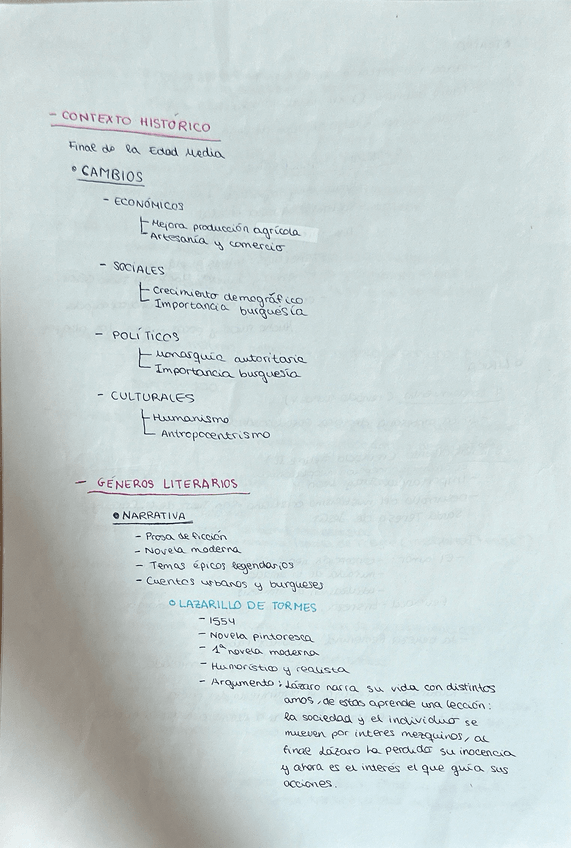 - CONTEXTO HISTÓRICO
Final de la Edad Media
• CAMBIOS
- ECONÓMICOS
Mejora producción agrícola
Artesanía y comercio
- SOCIALES
Crecimiento demográfico
Importancia burguesía
- POLÍTICOS
Monarquía autoritaria
Importancia burguesía
- CULTURALES
Humanismo
Antropocentrismo
- GÉNEROS LITERARIOS
• NARRATIVA
- Prosa de ficción
- Novela moderna
- Temas épicos legendarios
- Cuentos urbanos y burgueses
° LAZARILLO DE TORMES
- 1554
- Novela pintoresca
- 1ª novela moderna
- Humorístico y realista
- Argumento: Lázaro narra su vida con distintos
amos, de estas aprende una lección:
la sociedad y el individuo se
mueven por interes mezquinos, al
final Lázaro ha perdido su inocencia
y ahora es el interés el que guía sus
acciones.